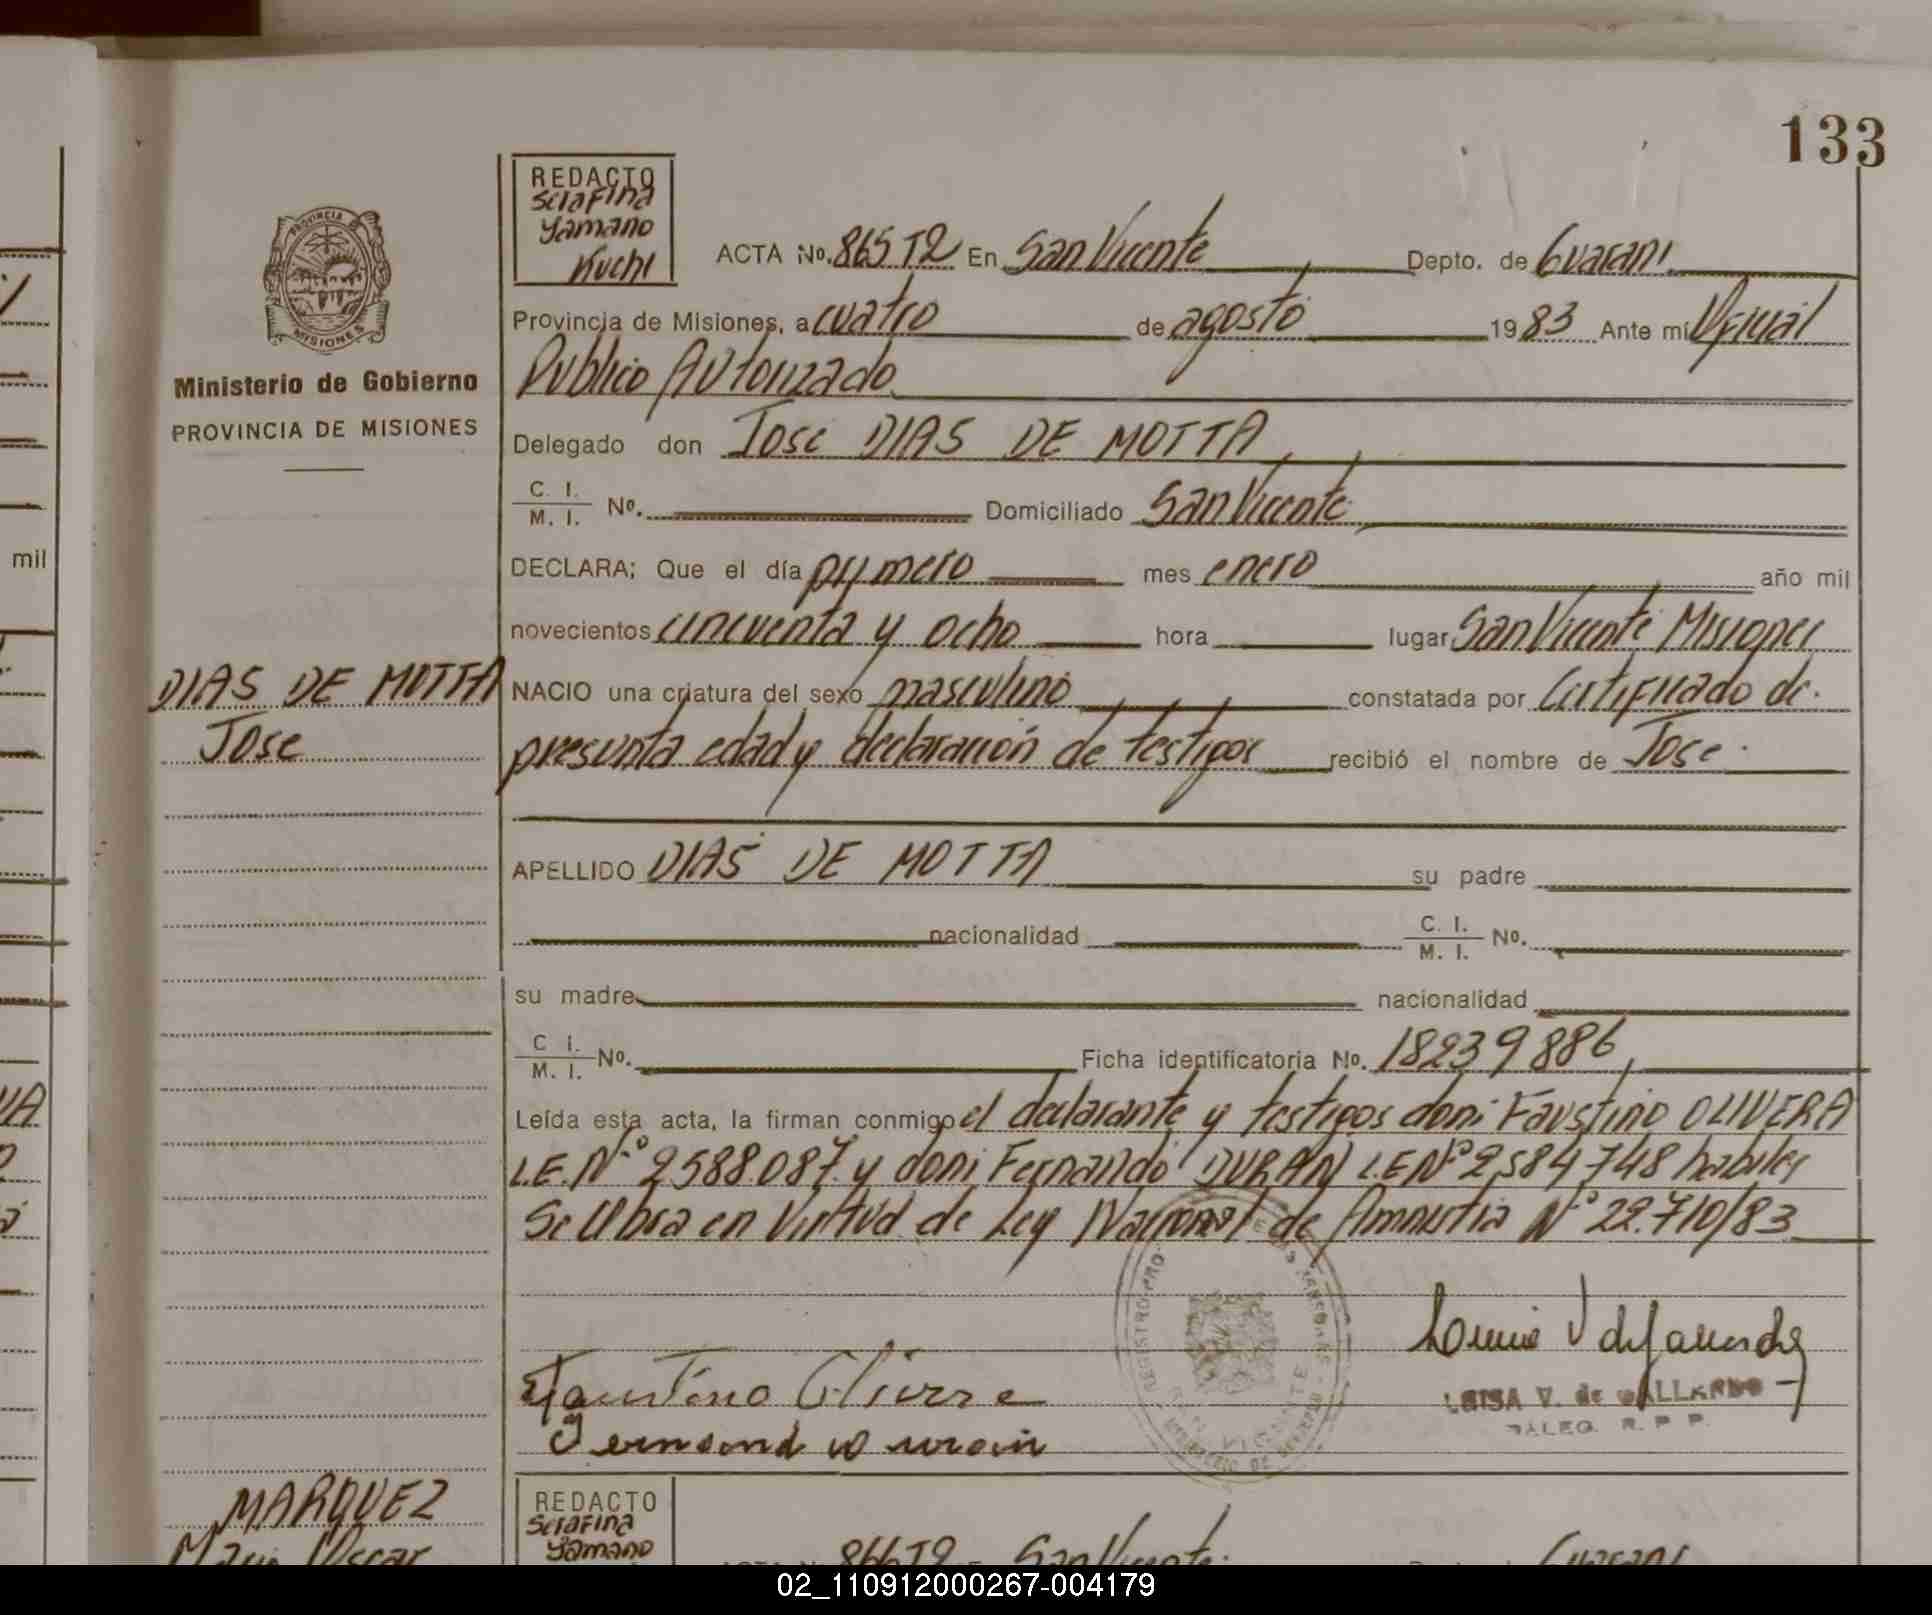 133
REDACTO
Serafina
Yamano
Kuchi
PROVINCIA DE
MISIONES
Ministerio de Gobierno
PROVINCIA DE MISIONES
ACTA No. 865 T2 En San Vicente Depto. de Guarani
Provincia de Misiones, a cuatro de agosto 1983 Ante mí Oficial
Publico Autorizado
Delegado don Jose DIAS DE MOTTA
C. I.
M. I. No. Domiciliado San Vicente
DECLARA; Que el día primero mes enero año mil
novecientos cincuenta y ocho hora lugar San Vicente Misiones
DIAS DE MOTTA
Jose
NACIO una criatura del sexo masculino constatada por Certificado de
presunta edad y declaración de testigos recibió el nombre de Jose
APELLIDO DIAS DE MOTTA su padre
nacionalidad C. I.
M. I. No.
su madre nacionalidad
C I.
M. I. No. Ficha identificatoria No. 18239886
Leída esta acta, la firman conmigo el declarante y testigos don: Faustino OLIVERA
L.E.N° 2588.087 y don: Fernando DURAN L.E N° 2584748 habiles
Se labra en Virtud de Ley Nacional de Amnistia N° 22.710/83
LUISA V. de GALLARDO
DALEG. R. P. P.
MARQUEZ
Mario Oscar
REDACTO
Serafina
Yamano
ACTA No. 866 T2 En San Vicente Depto. de Guarani
mil
02_110912000267-004179